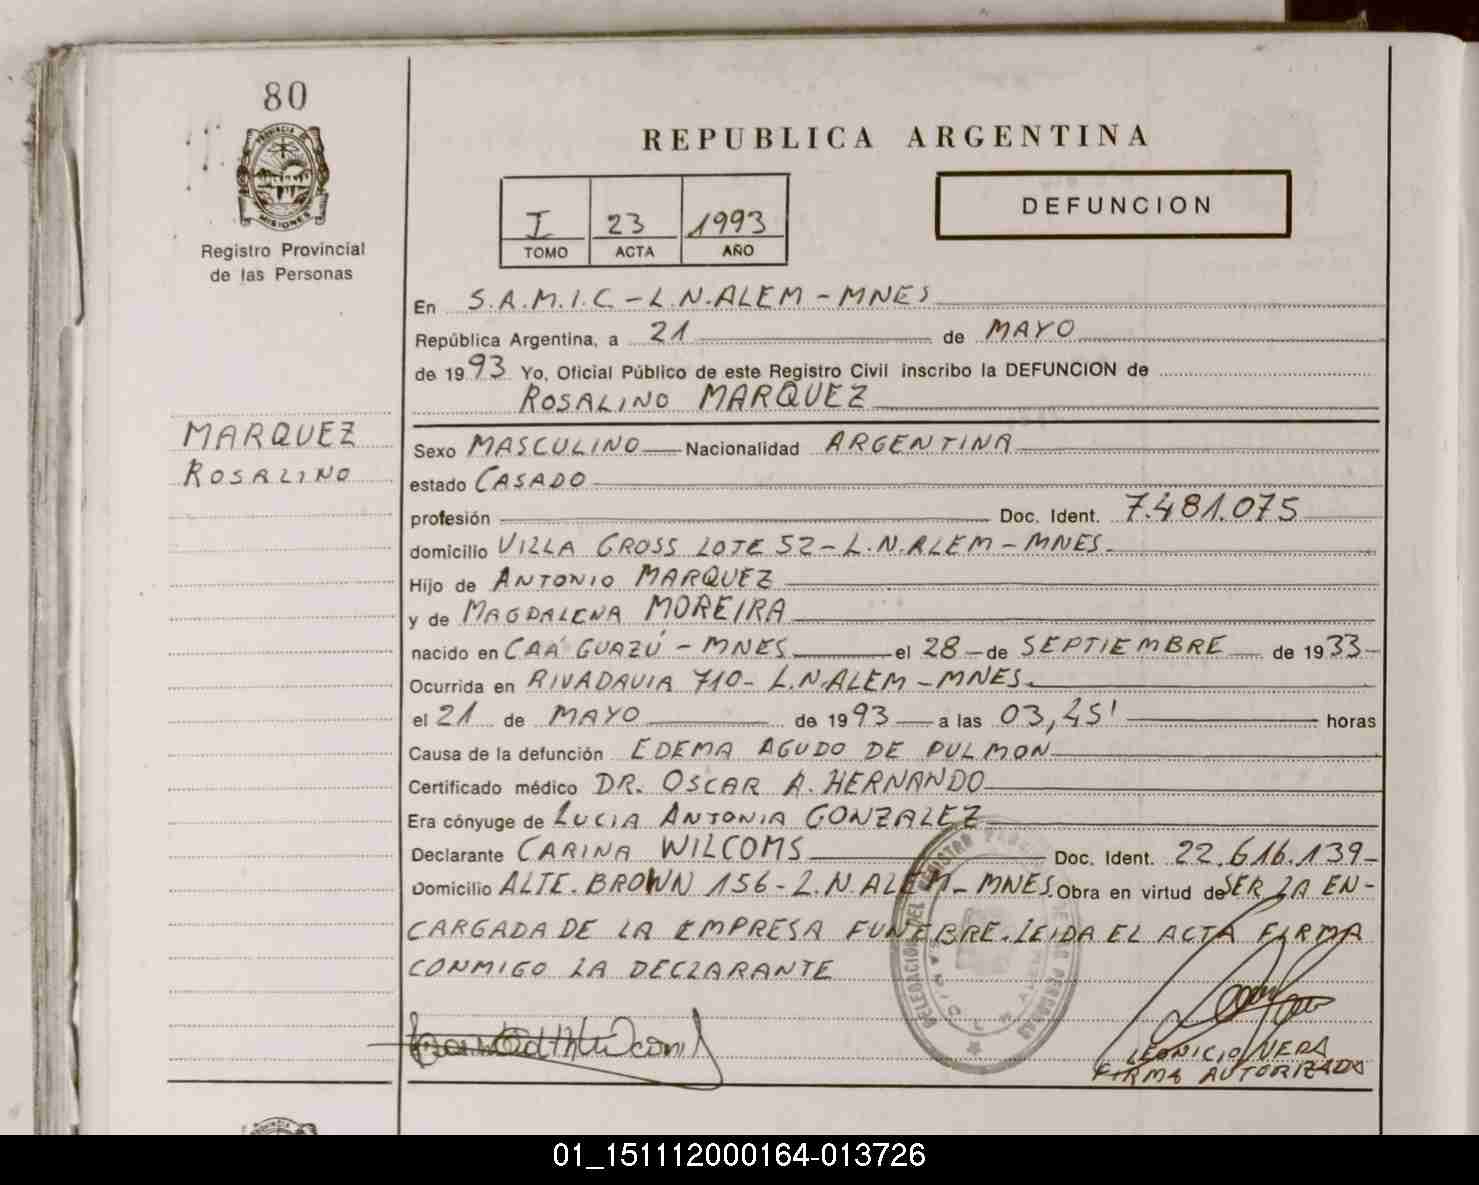 80
PROVINCIA DE
MISIONES
Registro Provincial
de las Personas
REPUBLICA ARGENTINA
I 23 1993
TOMO ACTA AÑO
DEFUNCION
En S.A.M.I.C.-L.N.ALEM-MNES
República Argentina, a 21 de MAYO
de 1993 Yo, Oficial Público de este Registro Civil inscribo la DEFUNCION de
ROSALINO MARQUEZ
MARQUEZ
ROSALINO
Sexo MASCULINO Nacionalidad ARGENTINA
estado CASADO
profesión Doc. Ident. 7.481.075
domicilio VILLA GROSS LOTE 52-L.N.ALEM-MNES.
Hijo de ANTONIO MARQUEZ
y de MAGDALENA MOREIRA
nacido en CAÁ GUAZÚ - MNES el 28 de SEPTIEMBRE de 1933-
Ocurrida en RIVADAVIA 710- L.N.ALEM-MNES.
el 21 de MAYO de 1993 a las 03,45' horas
Causa de la defunción EDEMA AGUDO DE PULMON
Certificado médico DR. OSCAR A. HERNANDO
Era cónyuge de LUCIA ANTONIA GONZALEZ
Declarante CARINA WILCOMS Doc. Ident. 22.616.139-
Domicilio ALTE. BROWN 156-L.N.ALEM-MNES. Obra en virtud de SER LA EN-
CARGADA DE LA EMPRESA FUNEBRE. LEIDA EL ACTA FIRMA
CONMIGO LA DECLARANTE
DELEGACION DEL REGISTRO DE LAS PERSONAS
LEONICIO VERA
FIRMA AUTORIZADA
01_151112000164-013726